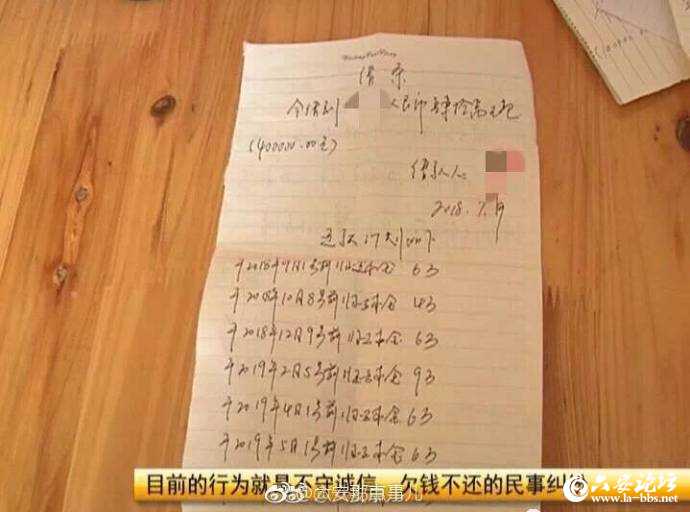 借条
今借到 人民币肆拾万元
(400000.00元)
借款人:
2018.7.
还款计划如下
于2018年9月1号前归还本金 6万
于2018年10月8号前归还本金 4万
于2018年12月9号前归还本金 6万
于2019年2月5号前归还本金 9万
于2019年4月1号前归还本金 6万
于2019年5月1号前归还本金 6万
目前的行为就是不守诚信 欠钱不还的民事纠
@六安那点事儿
六安论坛
www.la-bbs.net